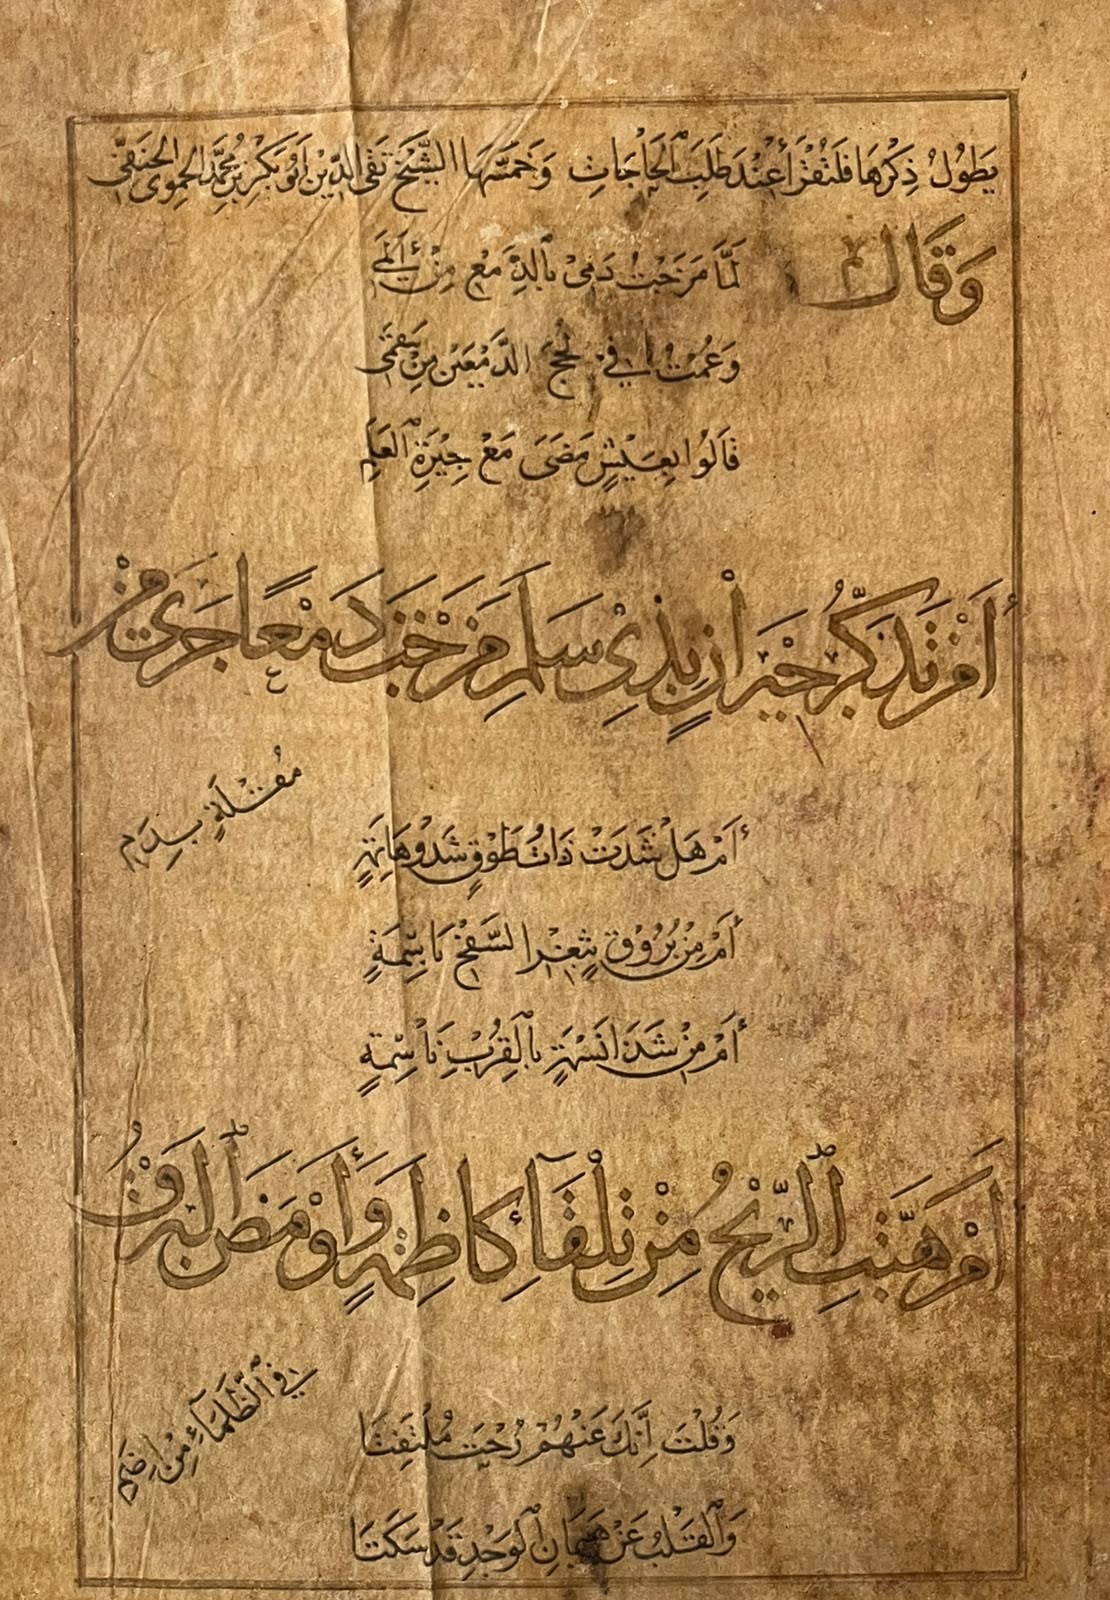 يَطُولُ ذِكْرُهَا فَلْتُقْرَأْ عِنْدَ طَلَبِ ٱلْحَاجَاتِ وَخَمَّسَهَا الشَّيْخُ تَقِي الدِّيْن اَبُو بَكْرِ بْنِ مُحَمَّد الحَمَوِى الْحَنَفِىّ
وَقَالَ لَمَّا مَزَجْتُ دَمِىْ بِٱلدَّمْعِ مِنْ أَلَمِىْ
وَعُمْتُ فِي لُجَجِ الدَّمْعَيْنِ مِنْ سَقَمِى
قَالُوا بِعَيْشٍ مَضَىَ مَعْ جِيْرَةِ ٱلْعَلَمِ
أَمِنْ تَذَكُّرِ جِيْرَانٍ بِذِىْ سَلَمِ مَزَجْتَ دَمْعًا جَرَىْ مِنْ
مُقْلَةٍ بِدَمِ
أَمْ هَلْ شَدَتْ ذَاتُ طَوْقٍ شَدْوَهَا
أَمْ مِنْ بُرُوْقٍ بِثَغْرِ السَّفْحِ بَاسِمَةٍ
أَمْ مِنْ شَذَا نَسْمَةٍ بِٱلْقُرْبِ نَاسِمَةٍ
أَمْ هَبَّتِ ٱلرِّيْحُ مِنْ تِلْقَآءِ كَاظِمَةٍ وَأَوْمَضَ ٱلْبَرْقُ
فِي ٱلظَّلْمَآءِ مِنْ اِضَمِ
وَقُلْتَ اِنَّكَ عَنْهُمْ رُحْتَ مُلْتَفِتَا
وَٱلْقَلْبُ عَنْ هَيَجَانِ ٱلْوَجْدِ قَدْ سَكَتَا